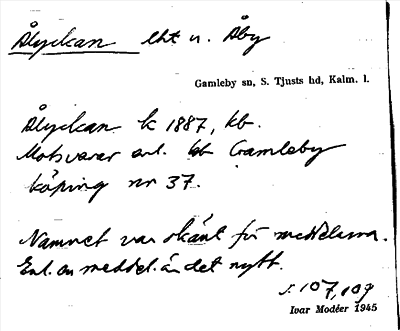 Ålyckan lht u. Åby
Gamleby sn, S. Tjusts hd, Kalm. l.
Ålyckan k 1887, kb.
Motsvarar enl. kb Gamleby
köping nr 37.
Namnet var okänt för meddelarna.
Enl. en meddel. är det nytt.
s. 107, 109
Ivar Modéer 1945